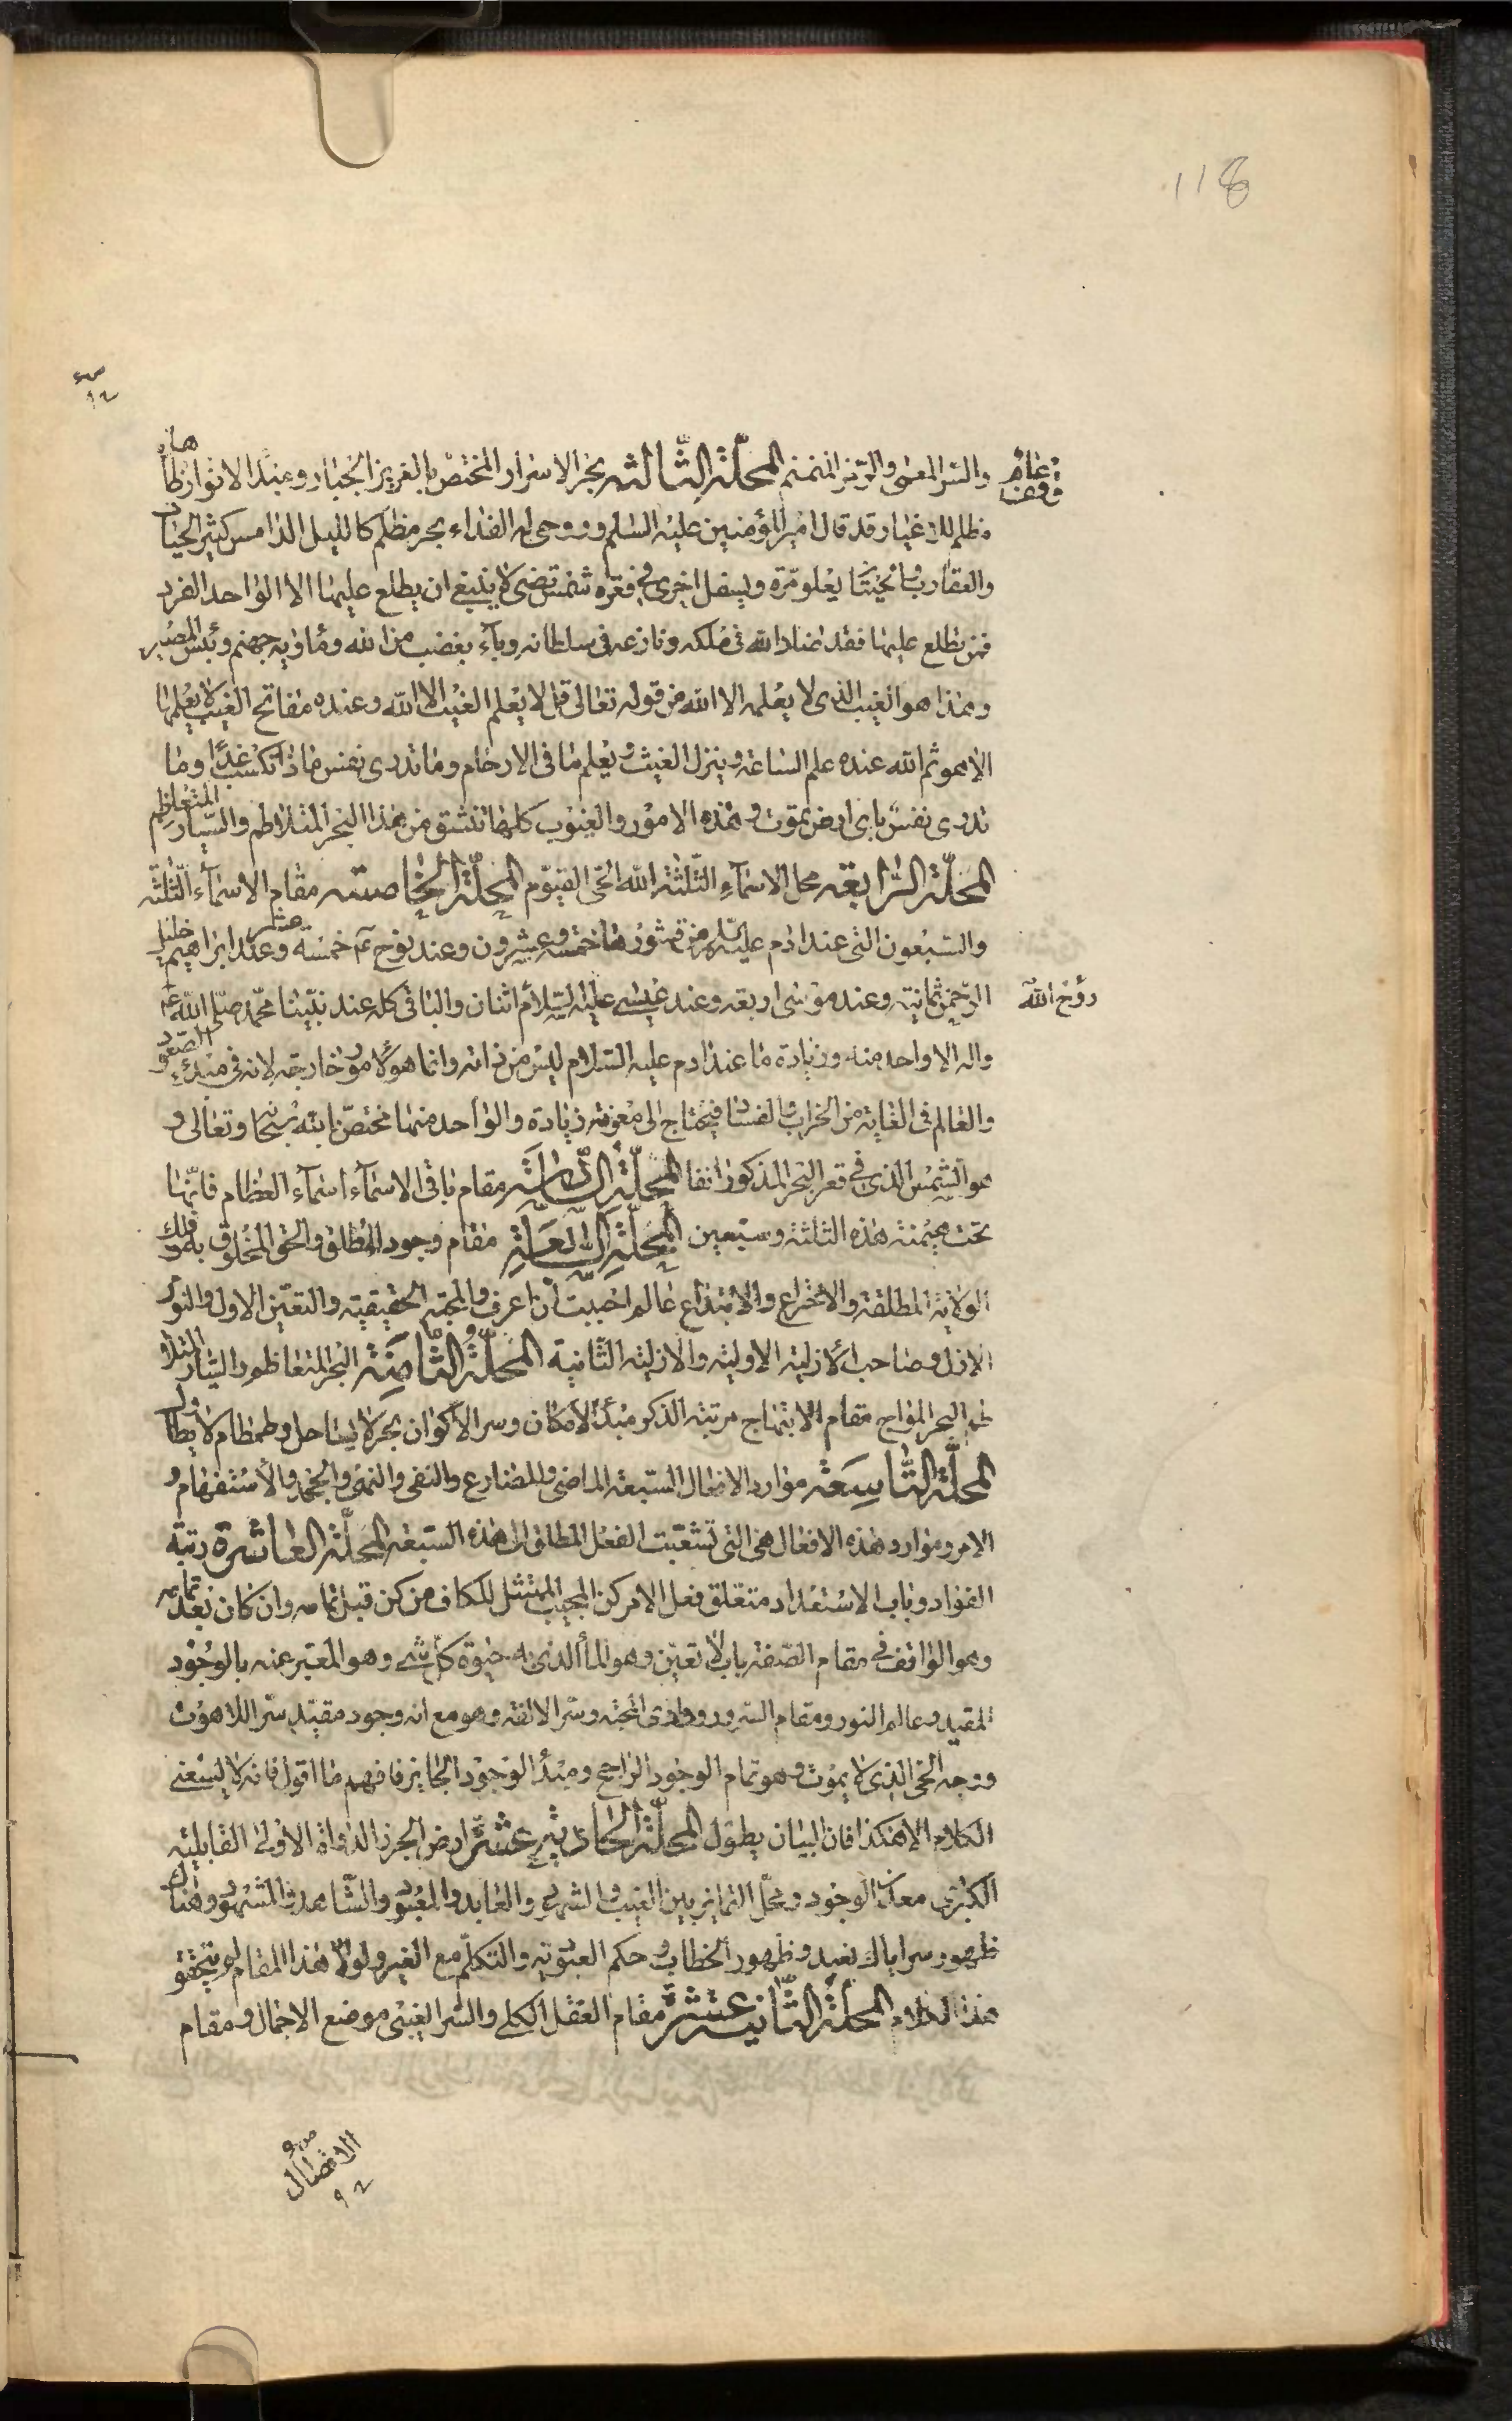 118
والسر المعمى والرمز المنمنم المحلة الثالثة بحر الاسرار المختص بالعزيز الجبار وعبد الانوار ظاهر
مظلم للاغيار وقد قال امير المؤمنين عليه السلام وروحى له الفداء بحر مظلم كالليل الدامس كثير الحيات
والعقارب والحيتان يعلو مرة ويسفل اخرى فى قعره شمس تضئ لا ينبغى ان يطلع عليها الا الواحد الفرد
فمن تطلع عليها فقد ضاد الله فى ملكه ونازعه فى سلطانه وباء بغضب من الله ومأويه جهنم وبئس المصير
وهذا هو الغيب الذى لا يعلمه الا الله من قوله تعالى قل لا يعلم الغيب الا الله وعنده مفاتح الغيب لا يعلمها
الا هو ثم الله عنده علم الساعة وينزل الغيث ويعلم ما فى الارحام وما تدرى نفس ماذا تكسب غدا وما
تدرى نفس باى ارض تموت وهذه الامور والغيوب كلها تنشق من هذا البحر المتلاطم والسيار المتعاظم
المحلة الرابعة محل الاسماء الثلثة الله الحى القيوم المحلة الخامسة مقام الاسماء الثلثة
والسبعون التى عند ادم عليه السلم من قشورها خمسة وعشرون وعند نوح عم خمسة عشر وعند ابراهيم خليل
الرحمن ثمانية وعند موسى اربعه وعند عيسى عليه السلام اثنان والباقى كله عند نبينا محمد صلى الله عليه
روح الله
واله الا واحد منه وزيادة ما عند ادم عليه السلام ليس من ذاته وانما هو لامور خارجة لانه فى مبدء الصعود
والعالم فى الغاية من الخراب والفساد فيحتاج الى معونة زيادة والواحد منها مختص بالله سبحانه وتعالى و
هو الشمس الذى فى قعر البحر المذكور انفا المحلة السادسة مقام باقى الاسماء اسماء العظام فانها
تحت هيمنة هذه الثلثة وسبعين المحلة السابعة مقام وجود المطلق والحق المخلوق به وفلك
الولاية المطلقة والاختراع والابتداع عالم احببت ان اعرف والمحبة الحقيقية والتعين الاول والنور
الازل وصاحب الازلية الاولية والازلية الثانية المحلة الثامنة البحر المتعاظم والسيار المتلا
طم البحر المواج مقام الابتهاج مرتبة الذكر مبدأ الامكان وسر الاكوان بحر لا يساحل وطمطام لا يطاول
المحلة التاسعة موارد الافعال السبعة الماضى والمضارع والنفى والنهى والجحد والاستفهام و
الامر وموارد هذه الافعال هى التى تشعبت الفعل المطلق الى هذه السبعة المحلة العاشرة رتبة
الفؤاد وباب الاستعداد متعلق فعل الامر كن المجيب الممتثل للكاف من كن قبل تمامه وان كان بعد تمامه
وهو الواقف فى مقام الصفة باب لا تعين وهو الماء الذى به حيوة كل شئ وهو المعبر عنه بالوجود
المقيد وعالم النور ومقام السرور ووادى المحبة وسر الالفة وهو مع انه وجود مقيد سر اللاهوت
ووجه الحى الذى لا يموت وهو تمام الوجود الراجح ومبدأ الوجود الجايز فافهم ما اقول فانه لا يسعنى
الكلام الا هكذا فان البيان يطول المحلة الحادية عشر ارض الجرز الدواة الاولى القابلية
الكبرى معدن الوجود ومحل التمايز بين الغيب والشهود والعابد والمعبود والشاهد والمشهود وهناك
ظهور سر اياك نعبد وظهور الخطاب وحكم العبودية والتكلم مع الغير ولولا هذا المقام لم يتحقق
هذا الكلام المحلة الثانية عشرة مقام العقل الكلى والسر الغيبى موضع الاجمال ومقام
الاتصال